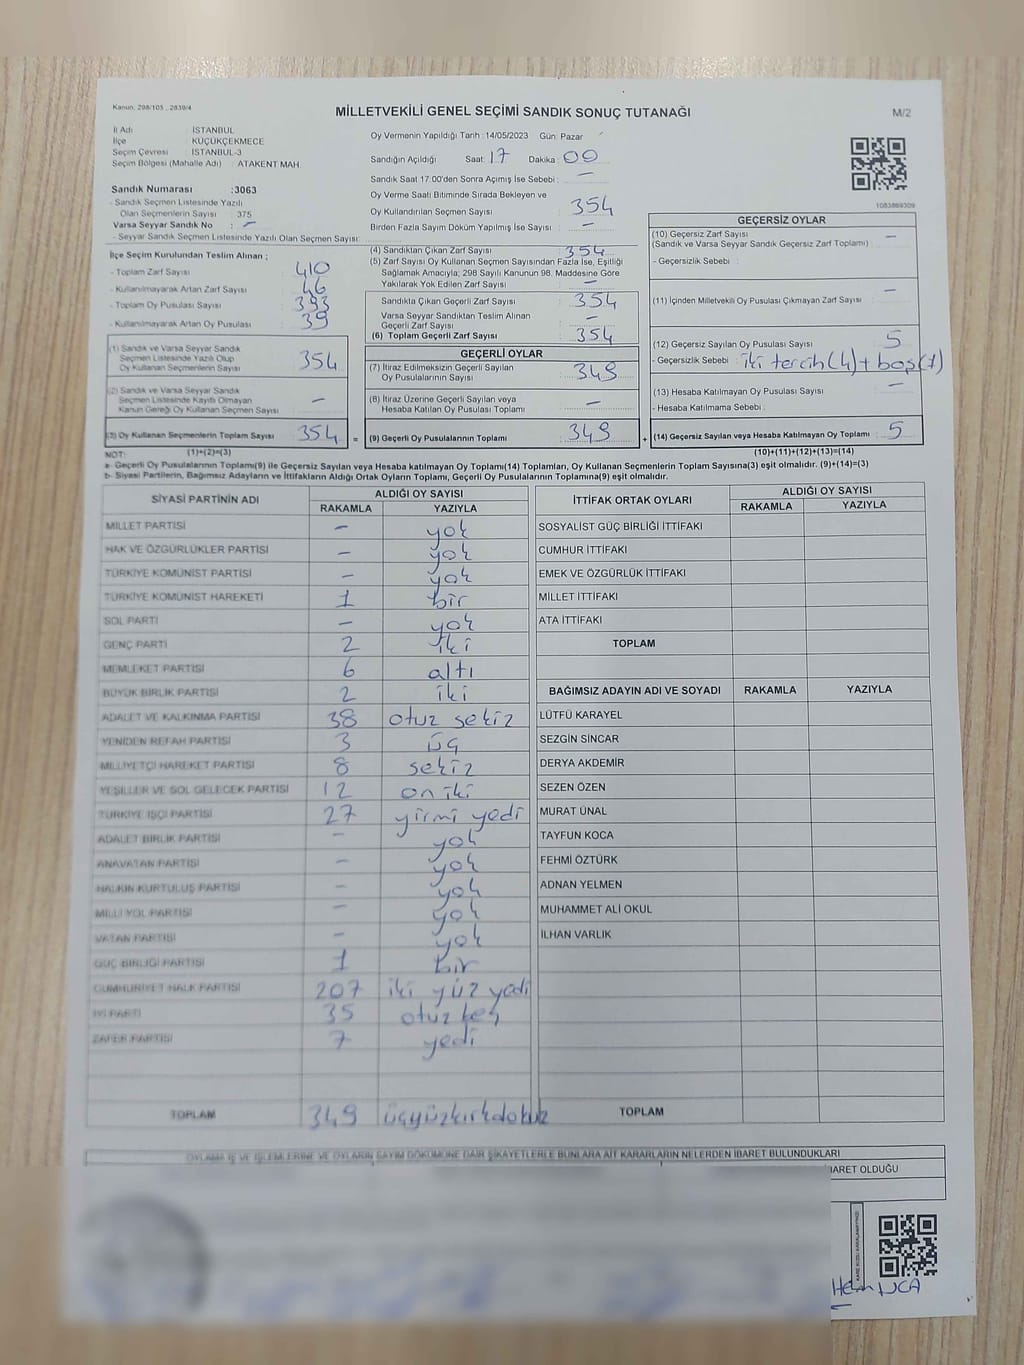 Kanun: 298/105 , 2839/4
MİLLETVEKİLİ GENEL SEÇİMİ SANDIK SONUÇ TUTANAĞI
M/2
İl Adı : İSTANBUL
İlçe : KÜÇÜKÇEKMECE
Seçim Çevresi : İSTANBUL-3
Seçim Bölgesi (Mahalle Adı) : ATAKENT MAH.
Sandık Numarası :3063
- Sandık Seçmen Listesinde Yazılı
Olan Seçmenlerin Sayısı : 375
Varsa Seyyar Sandık No : -
- Seyyar Sandık Seçmen Listesinde Yazılı Olan Seçmen Sayısı:
İlçe Seçim Kurulundan Teslim Alınan ;
- Toplam Zarf Sayısı 410
- Kullanılmayarak Artan Zarf Sayısı 46
- Toplam Oy Pusulası Sayısı 393
- Kullanılmayarak Artan Oy Pusulası 39
(1) Sandık ve Varsa Seyyar Sandık
Seçmen Listesinde Yazılı Olup
Oy Kullanan Seçmenlerin Sayısı 354
(2) Sandık ve Varsa Seyyar Sandık
Seçmen Listesinde Kayıtlı Olmayan
Kanun Gereği Oy Kullanan Seçmen Sayısı -
(3) Oy Kullanan Seçmenlerin Toplam Sayısı 354 =
Oy Vermenin Yapıldığı Tarih :14/05/2023 Gün: Pazar
Sandığın Açıldığı Saat: 17 Dakika : 00
Sandık Saat 17:00'den Sonra Açımış İse Sebebi : -
Oy Verme Saati Bitiminde Sırada Bekleyen ve
Oy Kullandırılan Seçmen Sayısı 354
Birden Fazla Sayım Döküm Yapılmış İse Sayısı : -
(4) Sandıktan Çıkan Zarf Sayısı : 354
(5) Zarf Sayısı Oy Kullanan Seçmen Sayısından Fazla İse, Eşitliği
Sağlamak Amacıyla; 298 Sayılı Kanunun 98. Maddesine Göre
Yakılarak Yok Edilen Zarf Sayısı : -
Sandıkta Çıkan Geçerli Zarf Sayısı 354
Varsa Seyyar Sandıktan Teslim Alınan
Geçerli Zarf Sayısı -
(6) Toplam Geçerli Zarf Sayısı 354
GEÇERLİ OYLAR
(7) İtiraz Edilmeksizin Geçerli Sayılan
Oy Pusulalarının Sayısı 349
(8) İtiraz Üzerine Geçerli Sayılan veya
Hesaba Katılan Oy Pusulası Toplamı -
(9) Geçerli Oy Pusulalarının Toplamı 349 +
1083869309
GEÇERSİZ OYLAR
(10) Geçersiz Zarf Sayısı -
(Sandık ve Varsa Seyyar Sandık Geçersiz Zarf Toplamı)
- Geçersizlik Sebebi :
(11) İçinden Milletvekili Oy Pusulası Çıkmayan Zarf Sayısı : -
(12) Geçersiz Sayılan Oy Pusulası Sayısı : 5
- Geçersizlik Sebebi : iki tercih(4)+boş(1)
(13) Hesaba Katılmayan Oy Pusulası Sayısı : -
- Hesaba Katılmama Sebebi :
(14) Geçersiz Sayılan veya Hesaba Katılmayan Oy Toplamı : 5
NOT: (1)+(2)=(3) (10)+(11)+(12)+(13)=(14)
a- Geçerli Oy Pusulalarının Toplamı(9) ile Geçersiz Sayılan veya Hesaba katılmayan Oy Toplamı(14) Toplamları, Oy Kullanan Seçmenlerin Toplam Sayısına(3) eşit olmalıdır. (9)+(14)=(3)
b- Siyasi Partilerin, Bağımsız Adayların ve İttifakların Aldığı Ortak Oyların Toplamı, Geçerli Oy Pusulalarının Toplamına(9) eşit olmalıdır.
SİYASİ PARTİNİN ADI ALDIĞI OY SAYISI
RAKAMLA YAZIYLA
MİLLET PARTİSİ - yok
HAK VE ÖZGÜRLÜKLER PARTİSİ - yok
TÜRKİYE KOMÜNİST PARTİSİ - yok
TÜRKİYE KOMÜNİST HAREKETİ 1 bir
SOL PARTİ - yok
GENÇ PARTİ 2 iki
MEMLEKET PARTİSİ 6 altı
BÜYÜK BİRLİK PARTİSİ 2 iki
ADALET VE KALKINMA PARTİSİ 38 otuz sekiz
YENİDEN REFAH PARTİSİ 3 üç
MİLLİYETÇİ HAREKET PARTİSİ 8 sekiz
YEŞİLLER VE SOL GELECEK PARTİSİ 12 on iki
TÜRKİYE İŞÇİ PARTİSİ 27 yirmi yedi
ADALET BİRLİK PARTİSİ - yok
ANAVATAN PARTİSİ - yok
HALKIN KURTULUŞ PARTİSİ - yok
MİLLİ YOL PARTİSİ - yok
VATAN PARTİSİ - yok
GÜÇ BİRLİĞİ PARTİSİ 1 bir
CUMHURİYET HALK PARTİSİ 207 iki yüz yedi
İYİ PARTİ 35 otuz beş
ZAFER PARTİSİ 7 yedi
TOPLAM 349 üçyüzkırkdokuz
İTTİFAK ORTAK OYLARI ALDIĞI OY SAYISI
RAKAMLA YAZIYLA
SOSYALİST GÜÇ BİRLİĞİ İTTİFAKI
CUMHUR İTTİFAKI
EMEK VE ÖZGÜRLÜK İTTİFAKI
MİLLET İTTİFAKI
ATA İTTİFAKI
TOPLAM
BAĞIMSIZ ADAYIN ADI VE SOYADI RAKAMLA YAZIYLA
LÜTFÜ KARAYEL
SEZGİN SİNCAR
DERYA AKDEMİR
SEZEN ÖZEN
MURAT ÜNAL
TAYFUN KOCA
FEHMİ ÖZTÜRK
ADNAN YELMEN
MUHAMMET ALİ OKUL
İLHAN VARLIK
TOPLAM
OYLAMA İŞ VE İŞLEMLERİNE VE OYLARIN SAYIM DÖKÜMÜNE DAİR ŞİKAYETLERLE BUNLARA AİT KARARLARIN NELERDEN İBARET BULUNDUKLARI
İBARET OLDUĞU